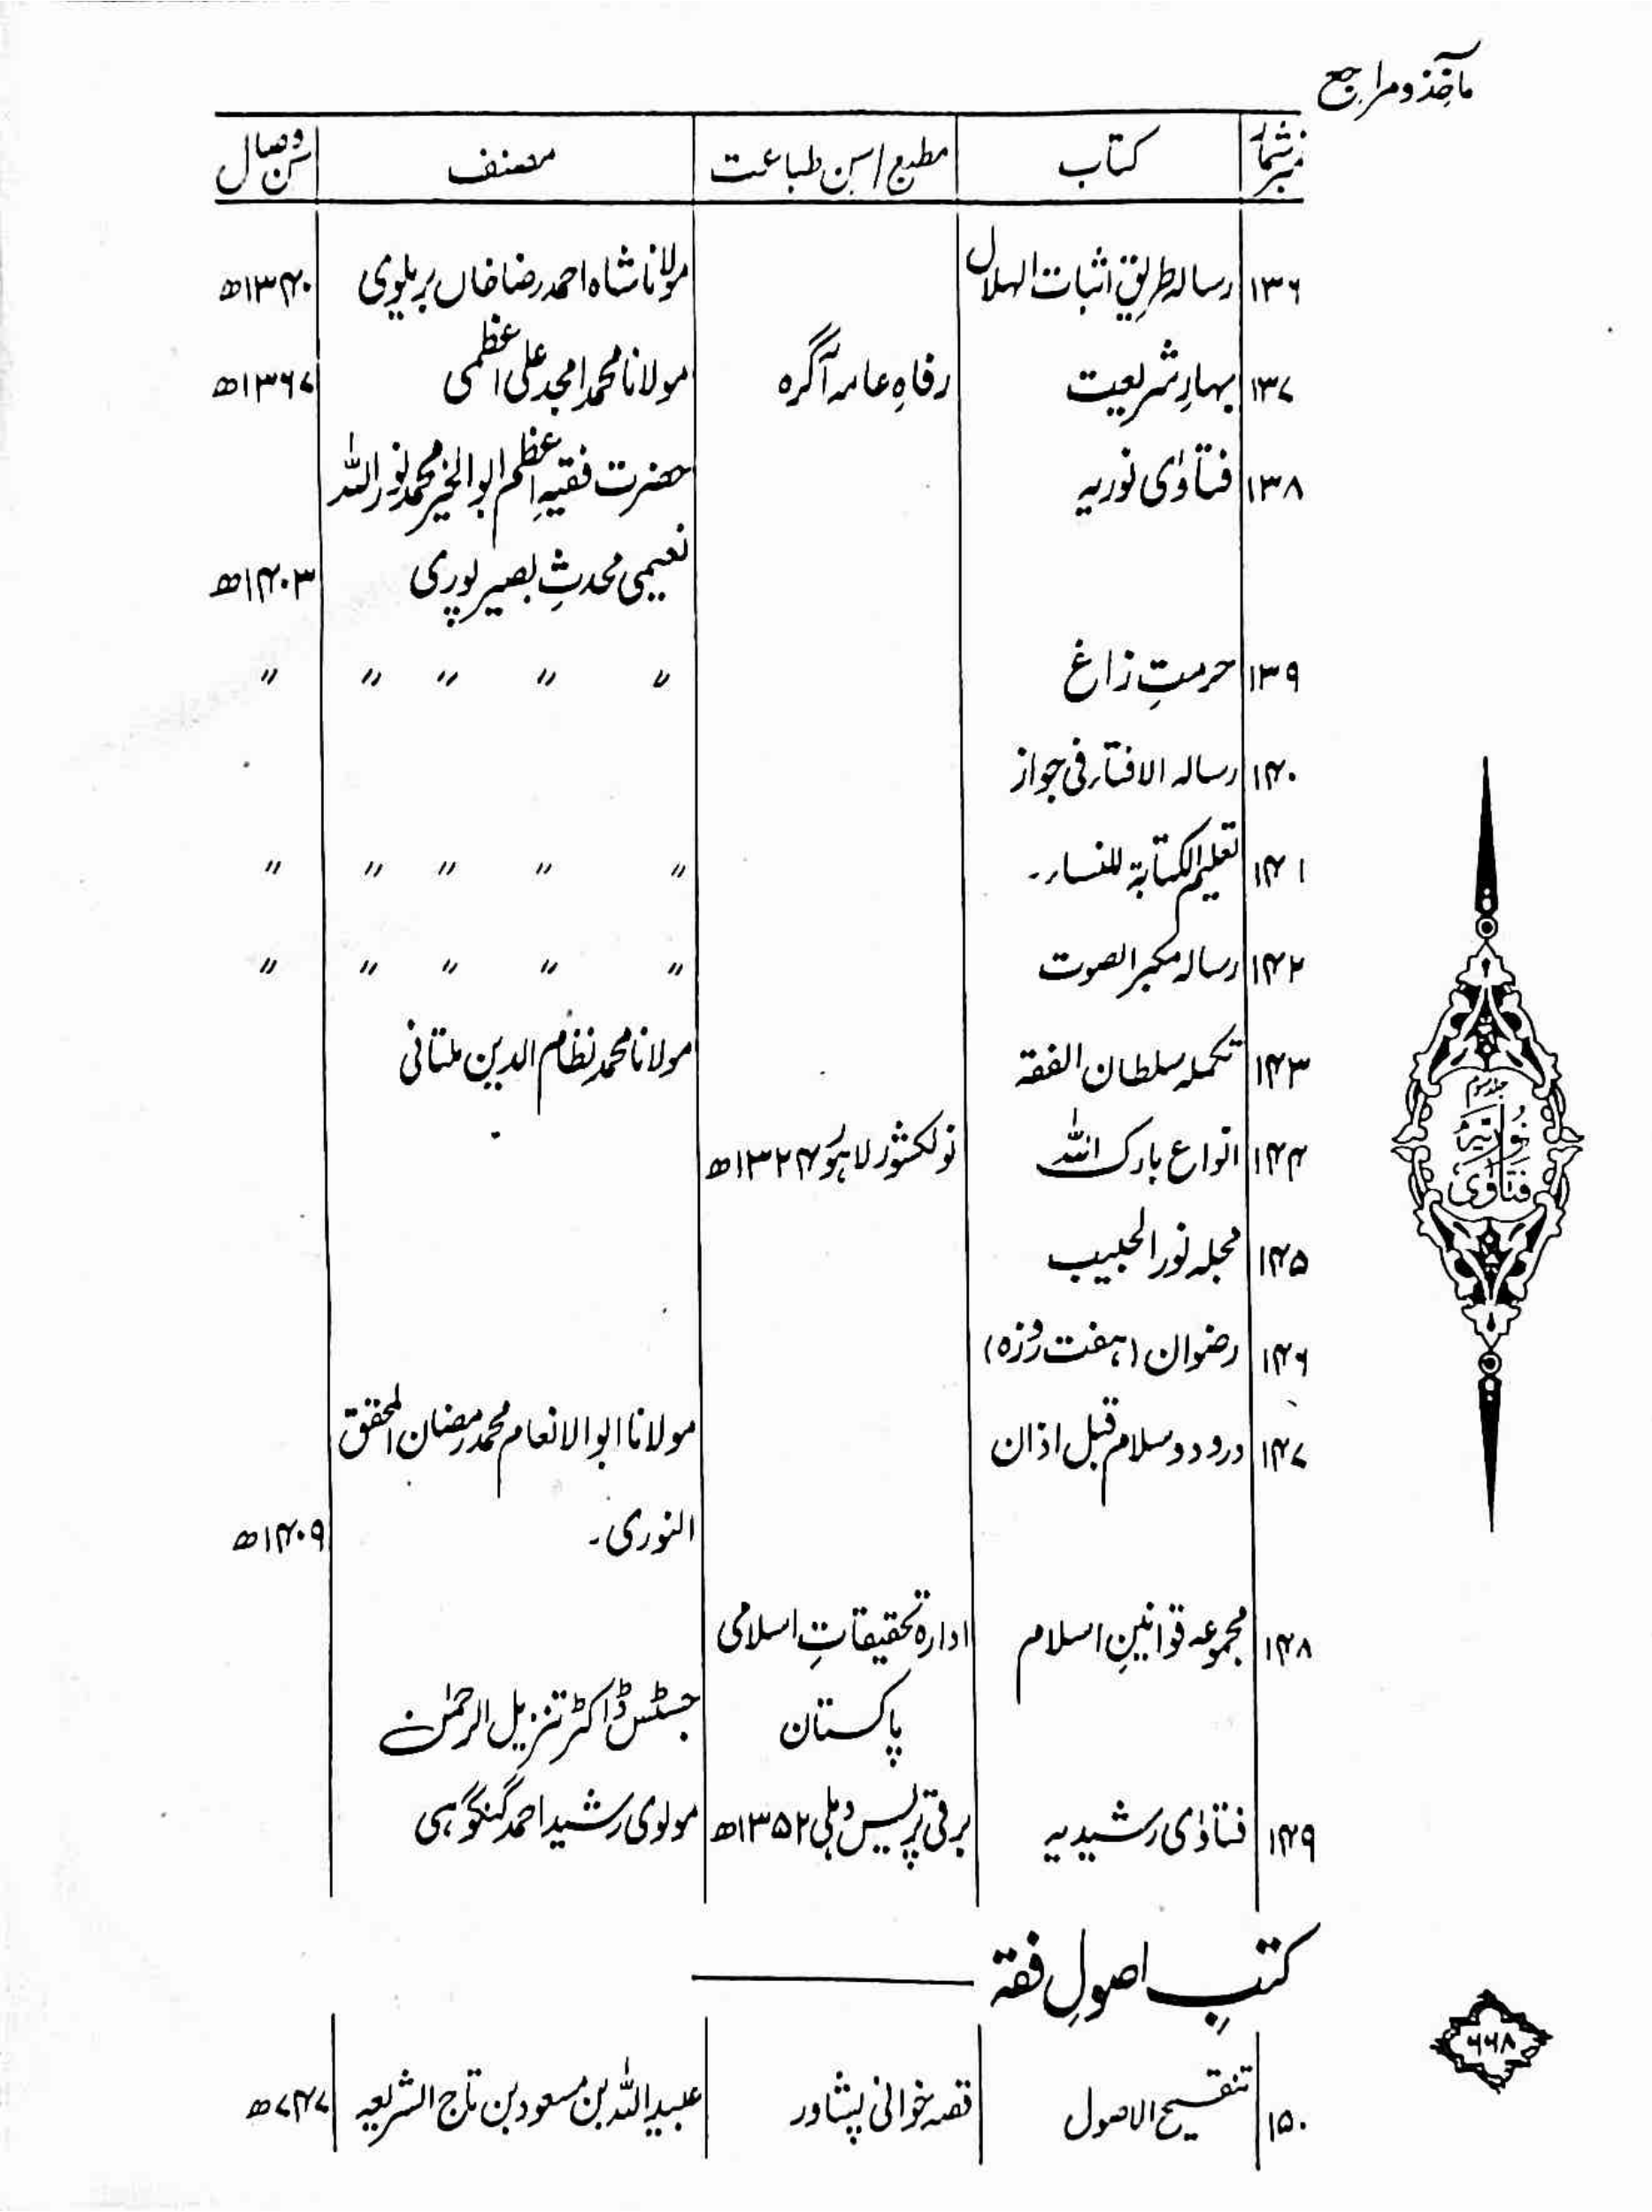 مآخذ و مراجع
نمبر شمار | کتاب | مطبع / سن طباعت | مصنف | سن وصال
۱۳۶ | رسالہ طریق اثبات الہلال | | مولانا شاہ احمد رضا خاں بریلوی | ۱۳۴۰ھ
۱۳۷ | بہارِ شریعت | رفاہِ عامہ آگرہ | مولانا محمد امجد علی اعظمی | ۱۳۶۷ھ
۱۳۸ | فتاوٰی نوریہ | | حضرت فقیہِ اعظم ابوالخیر محمد نور اللہ
نعیمی محدثِ بصیر پوری | ۱۴۰۳ھ
۱۳۹ | حرمتِ زاغ | | " " " " | "
۱۴۰ | رسالہ الافتاء فی جواز
۱۴۱ | تعلیم الکتابۃ للنساء۔ | | " " " " | "
۱۴۲ | رسالہ مکبر الصوت | | " " " " | "
۱۴۳ | تکملہ سلطان الفقہ | | مولانا محمد نظام الدین ملتانی
۱۴۴ | انواع بارک اللہ | نولکشور لاہور ۱۳۲۴ھ
۱۴۵ | مجلہ نور الحبیب
۱۴۶ | رضوان (ہفت روزہ)
۱۴۷ | درود و سلام قبل اذان | | مولانا ابو الانعام محمد رمضان المحقق
النوری۔ | ۱۴۰۹ھ
۱۴۸ | مجموعہ قوانینِ اسلام | ادارۃ تحقیقاتِ اسلامی
پاکستان | جسٹس ڈاکٹر تنزیل الرحمٰن
۱۴۹ | فتاوٰی رشیدیہ | برقی پریس دہلی ۱۳۵۲ھ | مولوی رشید احمد گنگوہی
کتبِ اصولِ فقہ
۱۵۰ | تنقیح الاصول | قصہ خوانی پشاور | عبید اللہ بن مسعود بن تاج الشریعہ | ۷۴۷ھ
جلد سوم
نوریہ
فتاوٰی
۶۶۸